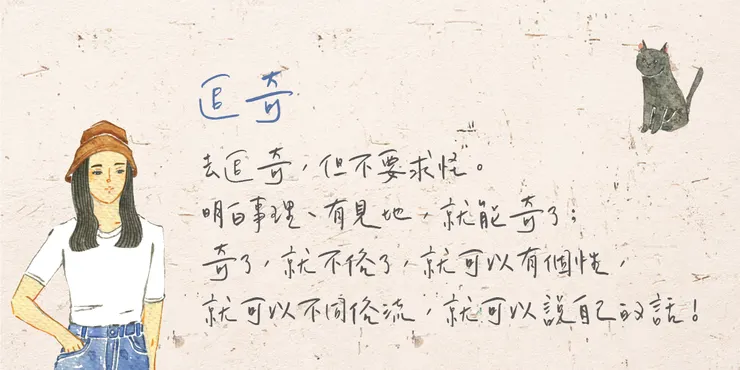 追奇
去追奇，但不要求怪。
明白事理、有見地，就能奇了；
奇了，就不俗了，就可以有個性，
就可以不同俗流，就可以說自己的話！